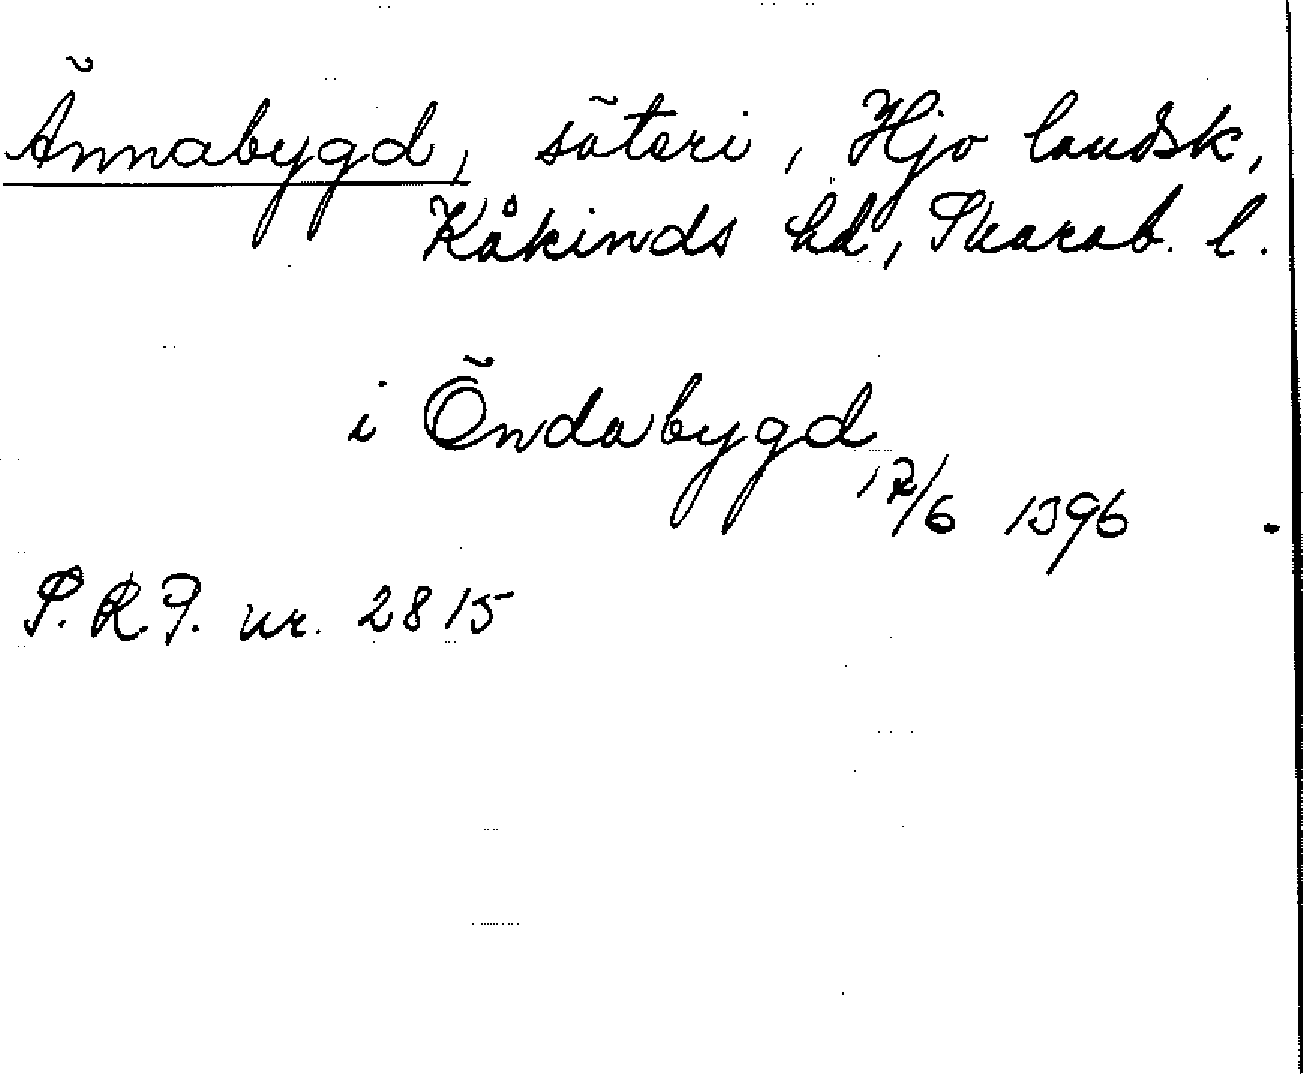 Ännabygd, säteri, Hjo landsk,
Kåkinds hd, Skarab. l.
i Öndabygd
12/6 1396.
S.R.P. nr. 2815